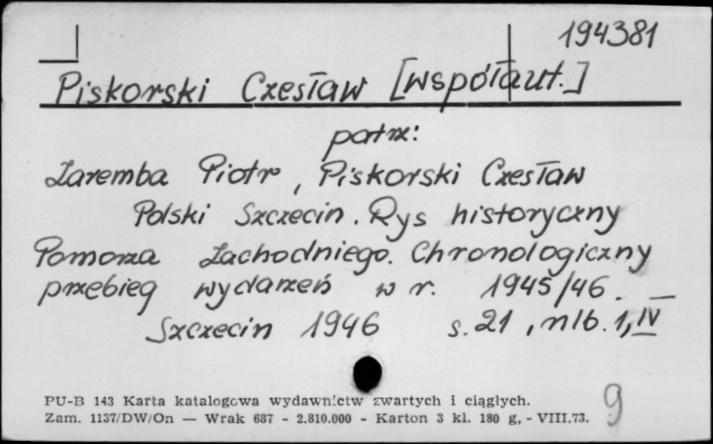 194381
Piskorski Czesław [współaut.]
patrz:
Zaremba Piotr, Piskorski Czesław
Polski Szczecin. Rys historyczny
Pomorza Zachodniego. Chronologiczny
przebieg wydarzeń w r. 1945/46. —
Szczecin 1946 s. 21, nlb. 1, IV
PU-B 143 Karta katalogowa wydawnictw zwartych i ciągłych.
Zam. 1137/DW/On — Wrak 687 - 2.810.000 - Karton 3 kl. 180 g, - VIII.73.
9